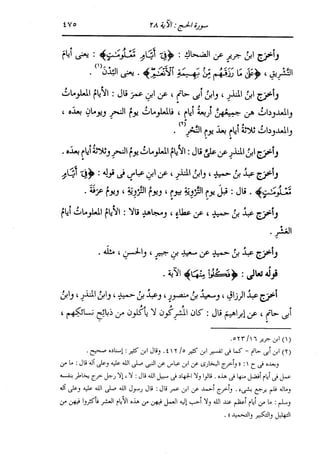 سورة الحج : الآية ٢٨ ٤٧٥
وأخرج ابن جرير عن الضحاك : ﴿فِىٓ أَيَّامٍ مَّعْلُومَٰتٍ﴾ : يعنى أيام
التشريق ، ﴿عَلَىٰ مَا رَزَقَهُم مِّنۢ بَهِيمَةِ ٱلْأَنْعَٰمِ﴾ . يعنى البُدْنَ(١) .
وأخرج ابن المنذر ، وابن أبى حاتم ، عن ابن عمر قال : الأيام المعلومات
والمعدودات هن جميعُهنَّ أربعةُ أيام ، فالمعلومات يوم النحر ويومان بعده ،
والمعدودات ثلاثة أيام بعد يوم النَّحْرِ(٢) .
وأخرج ابن المنذر عن علىٍّ قال : الأيام المعلومات يوم النحر وثلاثة أيام بعده .
وأخرج عبد بن حميد ، وابن المنذر ، عن ابن عباس فى قوله : ﴿فِىٓ أَيَّامٍ
مَّعْلُومَٰتٍ﴾ . قال : قبل يوم التَّروية بيوم ، ويوم التَّروية ، ويوم عرفة .
وأخرج عبد بن حميد ، عن عطاء ، ومجاهد قالا : الأيام المعلومات أيام
العشر .
وأخرج عبد بن حميد عن سعيد بن جبير ، والحسن ، مثله .
قوله تعالى : ﴿فَكُلُوا۟ مِنْهَا﴾ الآية .
أخرج عبد الرزاق ، وسعيد بن منصور ، وعبد بن حميد ، وابن المنذر ، وابن
أبى حاتم ، عن إبراهيم قال : كان المشركون لا يأكلون من ذبائح نسائكهم ،
(١) ابن جرير ١٦/ ٥٢٣.
(٢) ابن أبى حاتم - كما فى تفسير ابن كثير ٥/ ٤١٢. وقال ابن كثير : إسناده صحيح .
وبعده فى ح ١ : « وأخرج البخارى عن ابن عباس عن النبى صلى الله عليه وعلى آله قال : ما من
عمل فى أيام أفضل منها فى هذه . قالوا ولا الجهاد فى سبيل الله قال : لا ، إلا رجل خرج يخاطر بنفسه
وماله فلم يرجع بشىء . وأخرج أحمد عن ابن عمر قال : قال رسول الله صلى الله عليه وعلى آله
وسلم : ما من أيام أعظم عند الله ولا أحب إليه العمل فيهن من هذه الأيام العشر فأكثروا فيهن من
التهليل والتكبير والتحميد » .